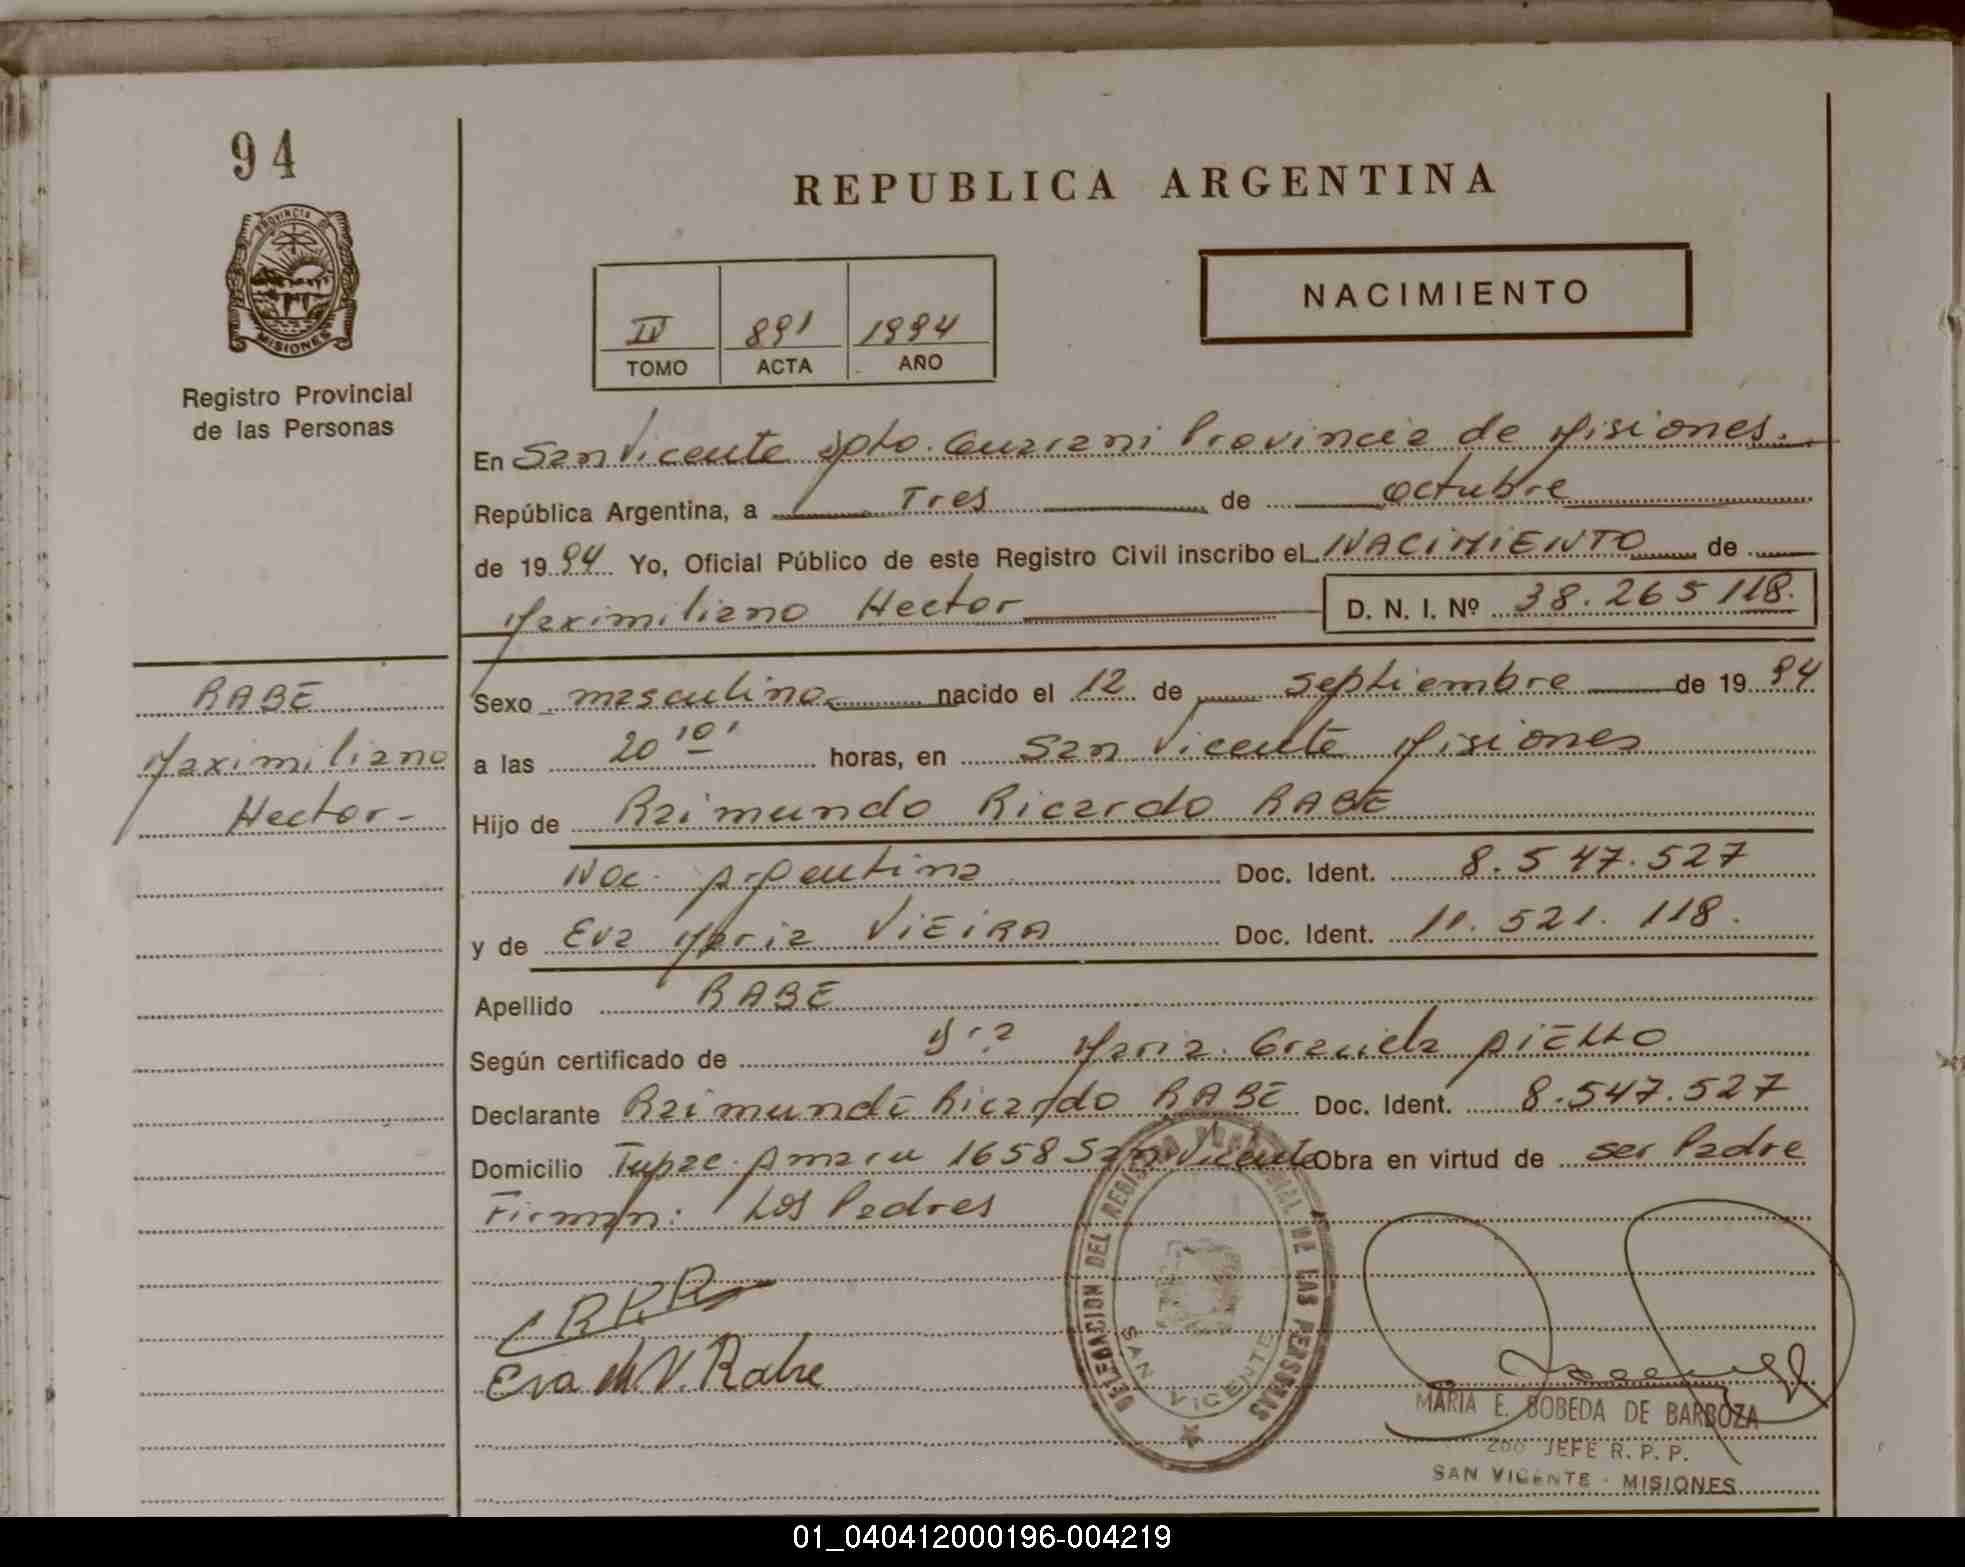 94
REPUBLICA ARGENTINA
PROVINCIA DE
MISIONES
NACIMIENTO
IV 891 1994
TOMO ACTA AÑO
Registro Provincial
de las Personas
En San Vicente Dpto. Guarani Provincia de Misiones.
República Argentina, a Tres de octubre
de 1994 Yo, Oficial Público de este Registro Civil inscribo el NACIMIENTO de
Maximiliano Hector D. N. I. Nº 38.265118.
RABE
Maximiliano
Hector-
Sexo masculino nacido el 12 de septiembre de 1994
a las 20 10' horas, en San Vicente Misiones
Hijo de Raimundo Ricardo RABE
Nac. Argentina Doc. Ident. 8.547.527
y de Eva Maria ViEiRA Doc. Ident. 11.521.118.
Apellido RABE
Según certificado de Dra Maria Graciela AiELLO
Declarante Raimundo Ricardo RABE Doc. Ident. 8.547.527
Domicilio Tupac Amaru 1658 San Vicente Obra en virtud de ser Padre
Firman: Los Padres
RRR
Eva M V. Rabe
DELEGACION DEL REGISTRO PROVINCIAL DE LAS PERSONAS
SAN VICENTE
MARIA E. BOBEDA DE BARBOZA
2do JEFE R. P. P.
SAN VICENTE - MISIONES
01_040412000196-004219